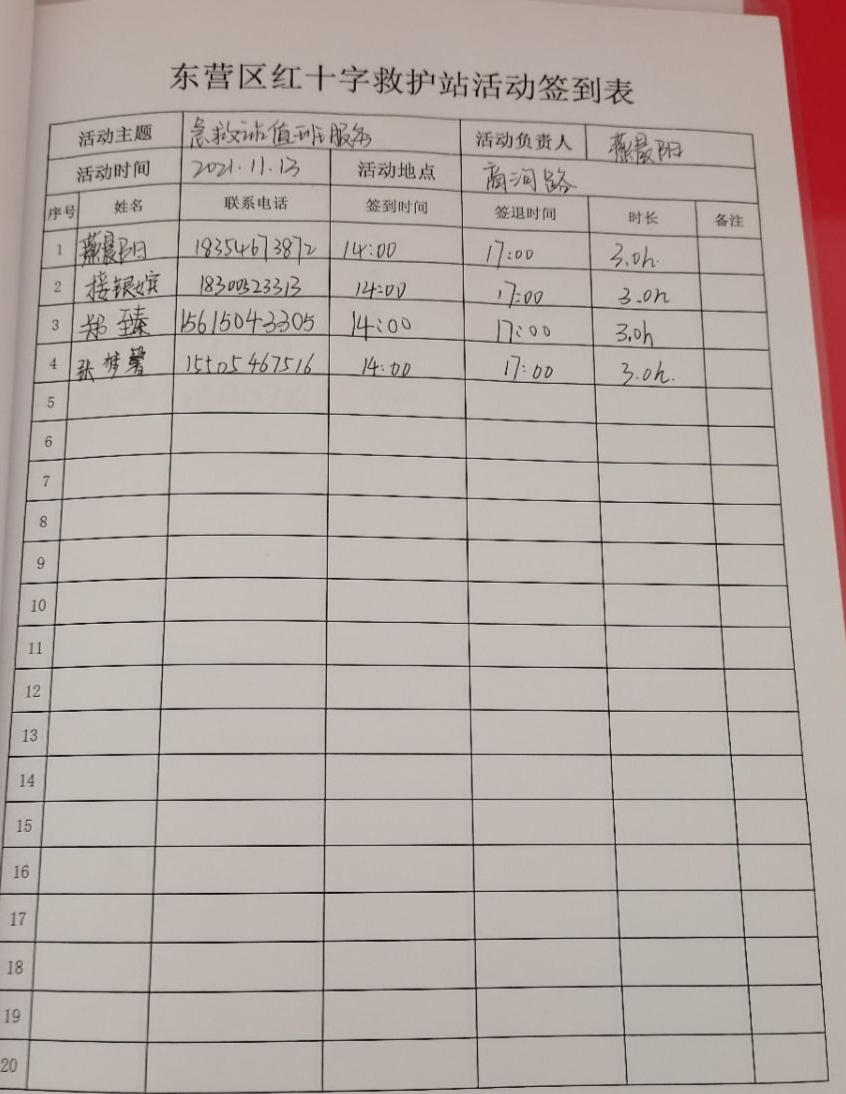 东营区红十字救护站活动签到表
活动主题 急救站值班服务 活动负责人 燕晨阳
活动时间 2021.11.13 活动地点 商河路
序号 姓名 联系电话 签到时间 签退时间 时长 备注
1 燕晨阳 18354673872 14:00 17:00 3.0h.
2 接银嫔 18300323313 14:00 17:00 3.0h
3 郑臻 15615043305 14:00 17:00 3.0h
4 张梦馨 14:00 17:00 3.0h.
5
6
7
8
9
10
11
12
13
14
15
16
17
18
19
20